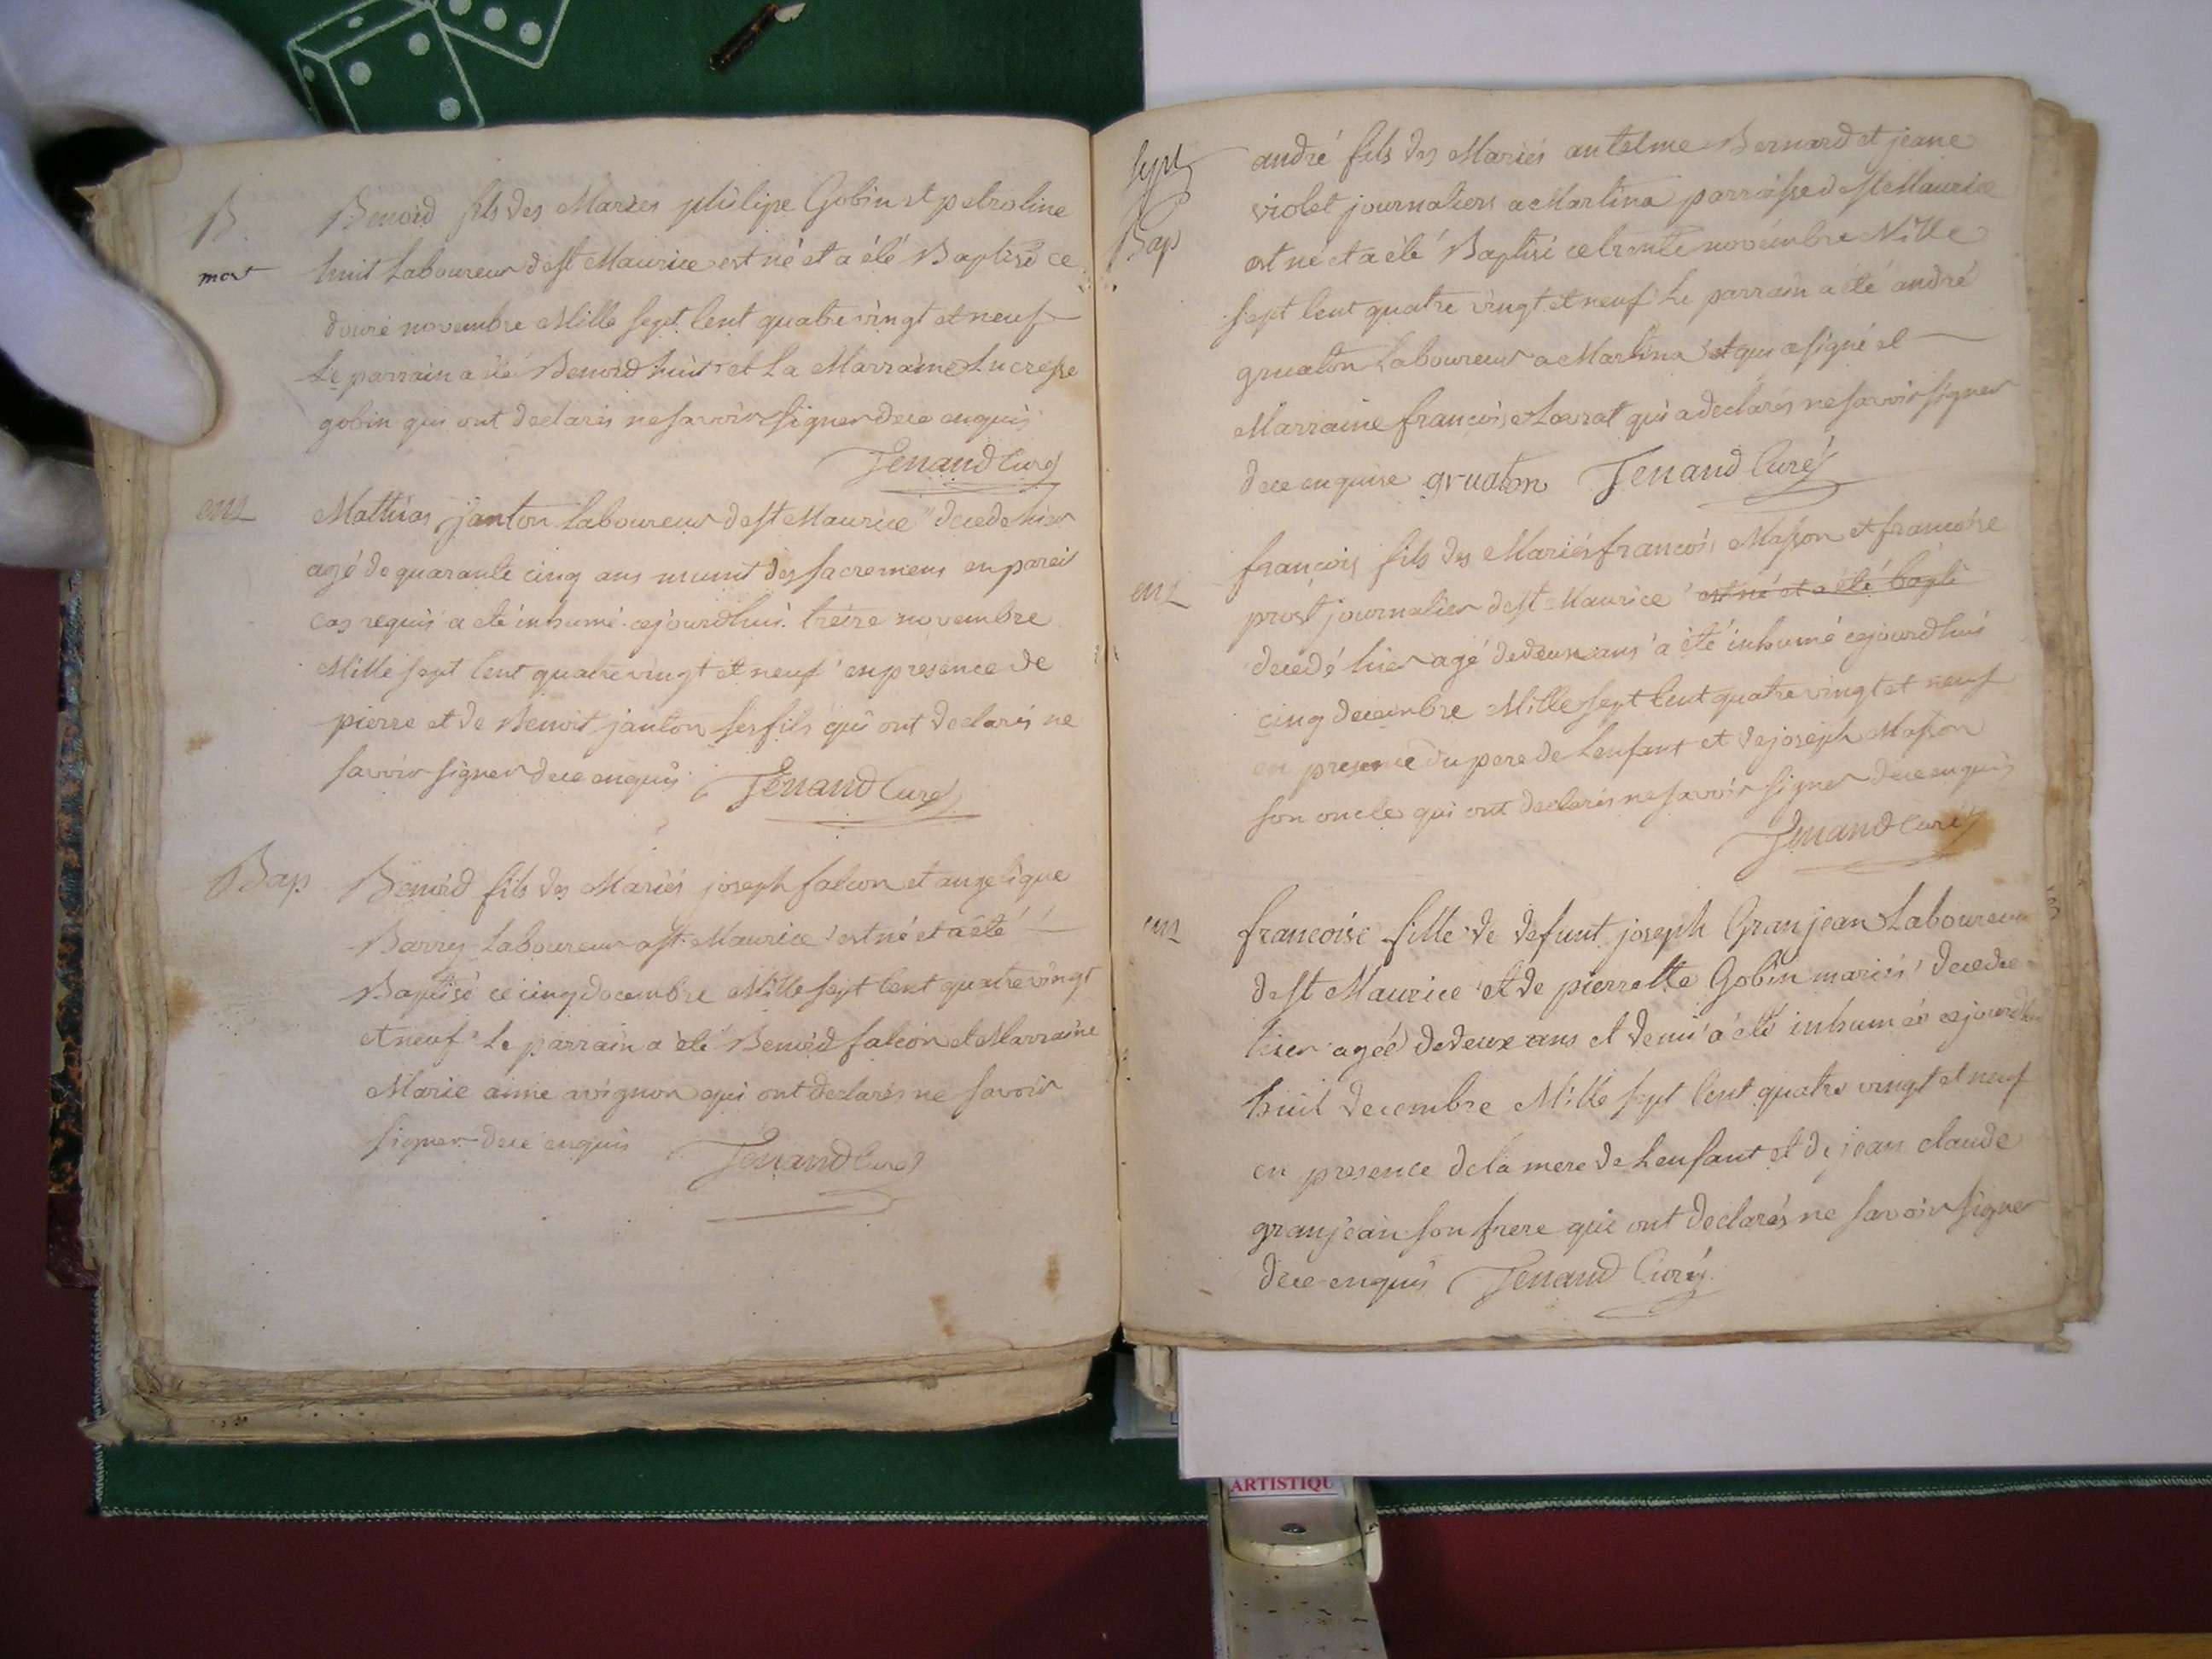 B
Benoid fils des Mariés philipe Gobin et petroline
mort
huit Laboureur de st Maurice est né et a été Baptisé ce
douze novembre Mille sept Cent quatre vingt et neuf
Le parrain a été Benoid huit et La Marraine Lucresse
gobin qui ont declarés ne savoir signer de ce enquis
Tenand Curé
ent
Mathias janton Laboureur de st Maurice decede hier
agé de quarante cinq ans munit des sacremens en pareil
cas requis a été inhumé cejourdhui treize novembre
Mille sept Cent quatre vingt et neuf en presence de
pierre et de Benoit janton ses fils qui ont declarés ne
savoir signer de ce enquis Tenand Curé
Bap
Benoid fils des Mariés joseph falcon et angelique
Barry Laboureur a st Maurice est né et a été
Baptisé ce cinq decembre Mille sept Cent quatre vingt
et neuf Le parrain a été Benoid falcon et Marraine
Marie anne avignon qui ont declarés ne savoir
signer de ce enquis Tenand Curé
Bap
andré fils des Mariés antelme Bernard et jeane
violet journaliers a Martina parroisse de st Maurice
est né et a été Baptisé ce trente novembre Mille
sept Cent quatre vingt et neuf Le parrain a été andré
gruaton Laboureur a Martina et qui a signé et
Marraine francoise Lovrat qui a declarés ne savoir signer
de ce enquise gruaton Tenand Curé
ent
françois fils des Mariés francois Masson et francoise
prost journalier de st Maurice est né et a été bapti
decedé hier agé de deux ans a été inhumé cejourdhui
cinq decembre Mille sept Cent quatre vingt et neuf
en presence du pere de Lenfant et de joseph Masson
son oncle qui ont declarés ne savoir signer de ce enquis
Tenand Curé
ent
francoise fille de defunt joseph Granjean Laboureur
de st Maurice et de pierrette Gobin mariés decedee
hier ageé de deux ans et demi a été inhumée cejourdhui
huit decembre Mille sept Cent quatre vingt et neuf
en presence de la mere de Lenfant et de jean claude
granjean son frere qui ont declarés ne savoir signer
de ce enquis Tenand Curé
ARTISTIQU